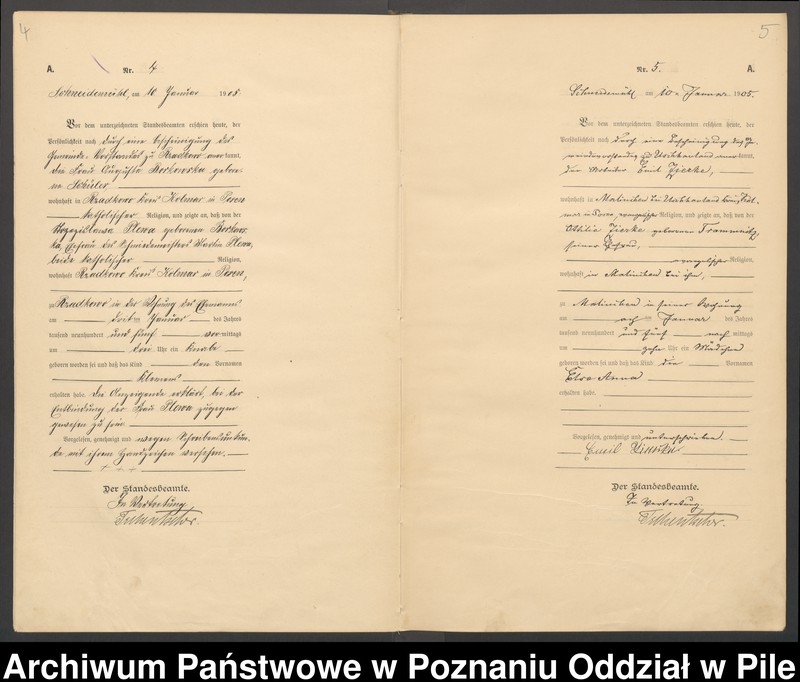 4
A. Nr. 4
Schneidemühl, am 10 Januar 1905.
Vor dem unterzeichneten Standesbeamten erschien heute, der
Persönlichkeit nach durch eine Bescheinigung des
Gemeinde-Vorstandes zu Rzadkowo anerkannt,
die Frau Augusta Borkowska gebore-
ne Schüler
wohnhaft in Rzadkowo Kreis Kolmar in Posen
katholischer Religion, und zeigte an, daß von der
Plewa geborenen Borkows-
ka, Ehefrau des Schmiedemeisters Martin Plewa,
beide katholischer Religion,
wohnhaft Rzadkowo Kreis Kolmar in Posen,
zu Rzadkowo in der Wohnung des Ehemannes
am Januar des Jahres
tausend neunhundert und fünf vormittags
um Uhr ein Knabe
geboren worden sei und daß das Kind den Vornamen
Klemens
erhalten habe. Die Anzeigende erklärt, bei der
Entbindung der Frau Plewa zugegen
gewesen zu sein
Vorgelesen, genehmigt und wegen Schreibensunkun-
de mit ihrem Handzeichen versehen.
+ + +
Der Standesbeamte.
In Vertretung
5
Nr. 5. A.
Schneidemühl am 10. Januar 1905.
Vor dem unterzeichneten Standesbeamten erschien heute, der
Persönlichkeit nach durch eine Bescheinigung des Ge-
meindevorstandes zu Uschhauland anerkannt,
der Arbeiter Emil Zierke,
wohnhaft in bei Uschhauland Kreis Kol-
mar in Posen, evangelischer Religion, und zeigte an, daß von der
Ottilie Zierke geborene
seiner Ehefrau,
evangelischer Religion,
wohnhaft in bei ihm,
zu in seiner Wohnung
am Januar des Jahres
tausend neunhundert und fünf nachmittags
um zehn Uhr ein Mädchen
geboren worden sei und daß das Kind die Vornamen
Anna
erhalten habe.
Vorgelesen, genehmigt und unterschrieben.
Emil
Der Standesbeamte.
In Vertretung.
Archiwum Państwowe w Poznaniu Oddział w Pile